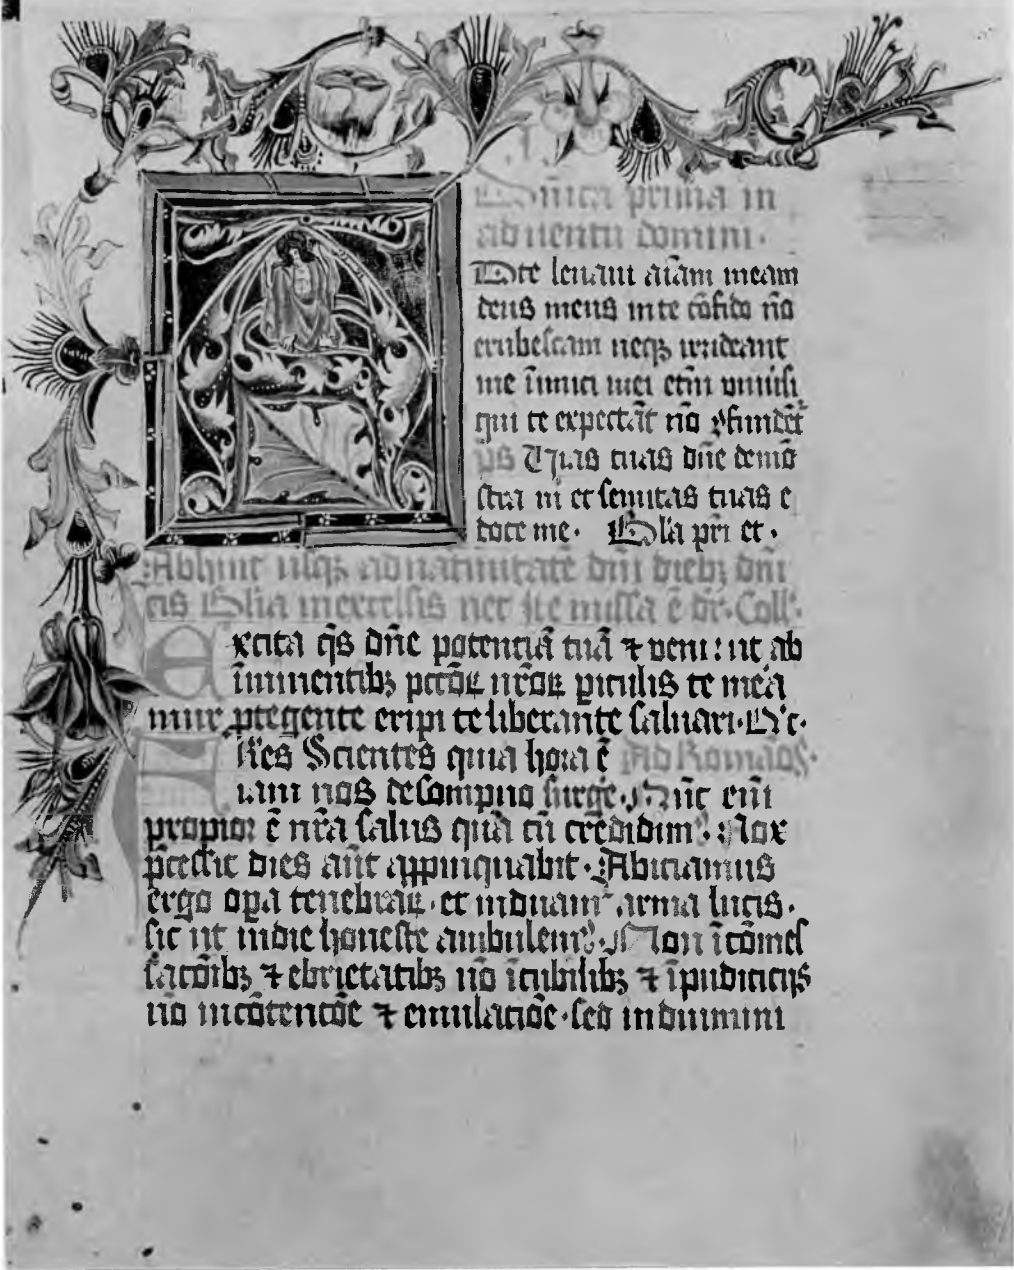 Dn̄ica prima in
aduentu domini·
D te leuaui aīam meam
deus meus in te cōfido nō
erubescam neq̨ irrideant
me īimici mei etīn vniūsi
qui te expectāt nō ꝯfundēt̄
ps Uias tuas dn̄e demō
stra m̄ et semitas tuas e
doce me· Gl'a pr̄i et·
Abhinc usq̨ ad natiuitatē dn̄i dieb; dn̄i
cis Gl̄ia in excelsis nec Ite missa ē dr̄· Coll'·
Excita q̄s dn̄e potentiā tuā ⁊ veni: ut ab
īminentib; pccō⁊ nr̄o⁊ p̱iculis te mea
mur p̱tegente eripi te liberante saluari·
Fr̄es Scientes quia hora ē Ad Romāos·
iam nos de sompno surge᷑· Nūc eni
propior ē nr̄a salus quā cū credidim᷒· Nox
p̄cessit dies aūt app̱inquabit· Abiciamus
ergo op̱a tenebra⁊· et induam᷑ arma lucis·
sic ut in die honeste ambulem᷒· Non ī cōmes
sacōib; ⁊ ebrietatib; nō ī cubilib; ⁊ īpudicicijs
nō in cōtencōe ⁊ emulacōe· sed induimini